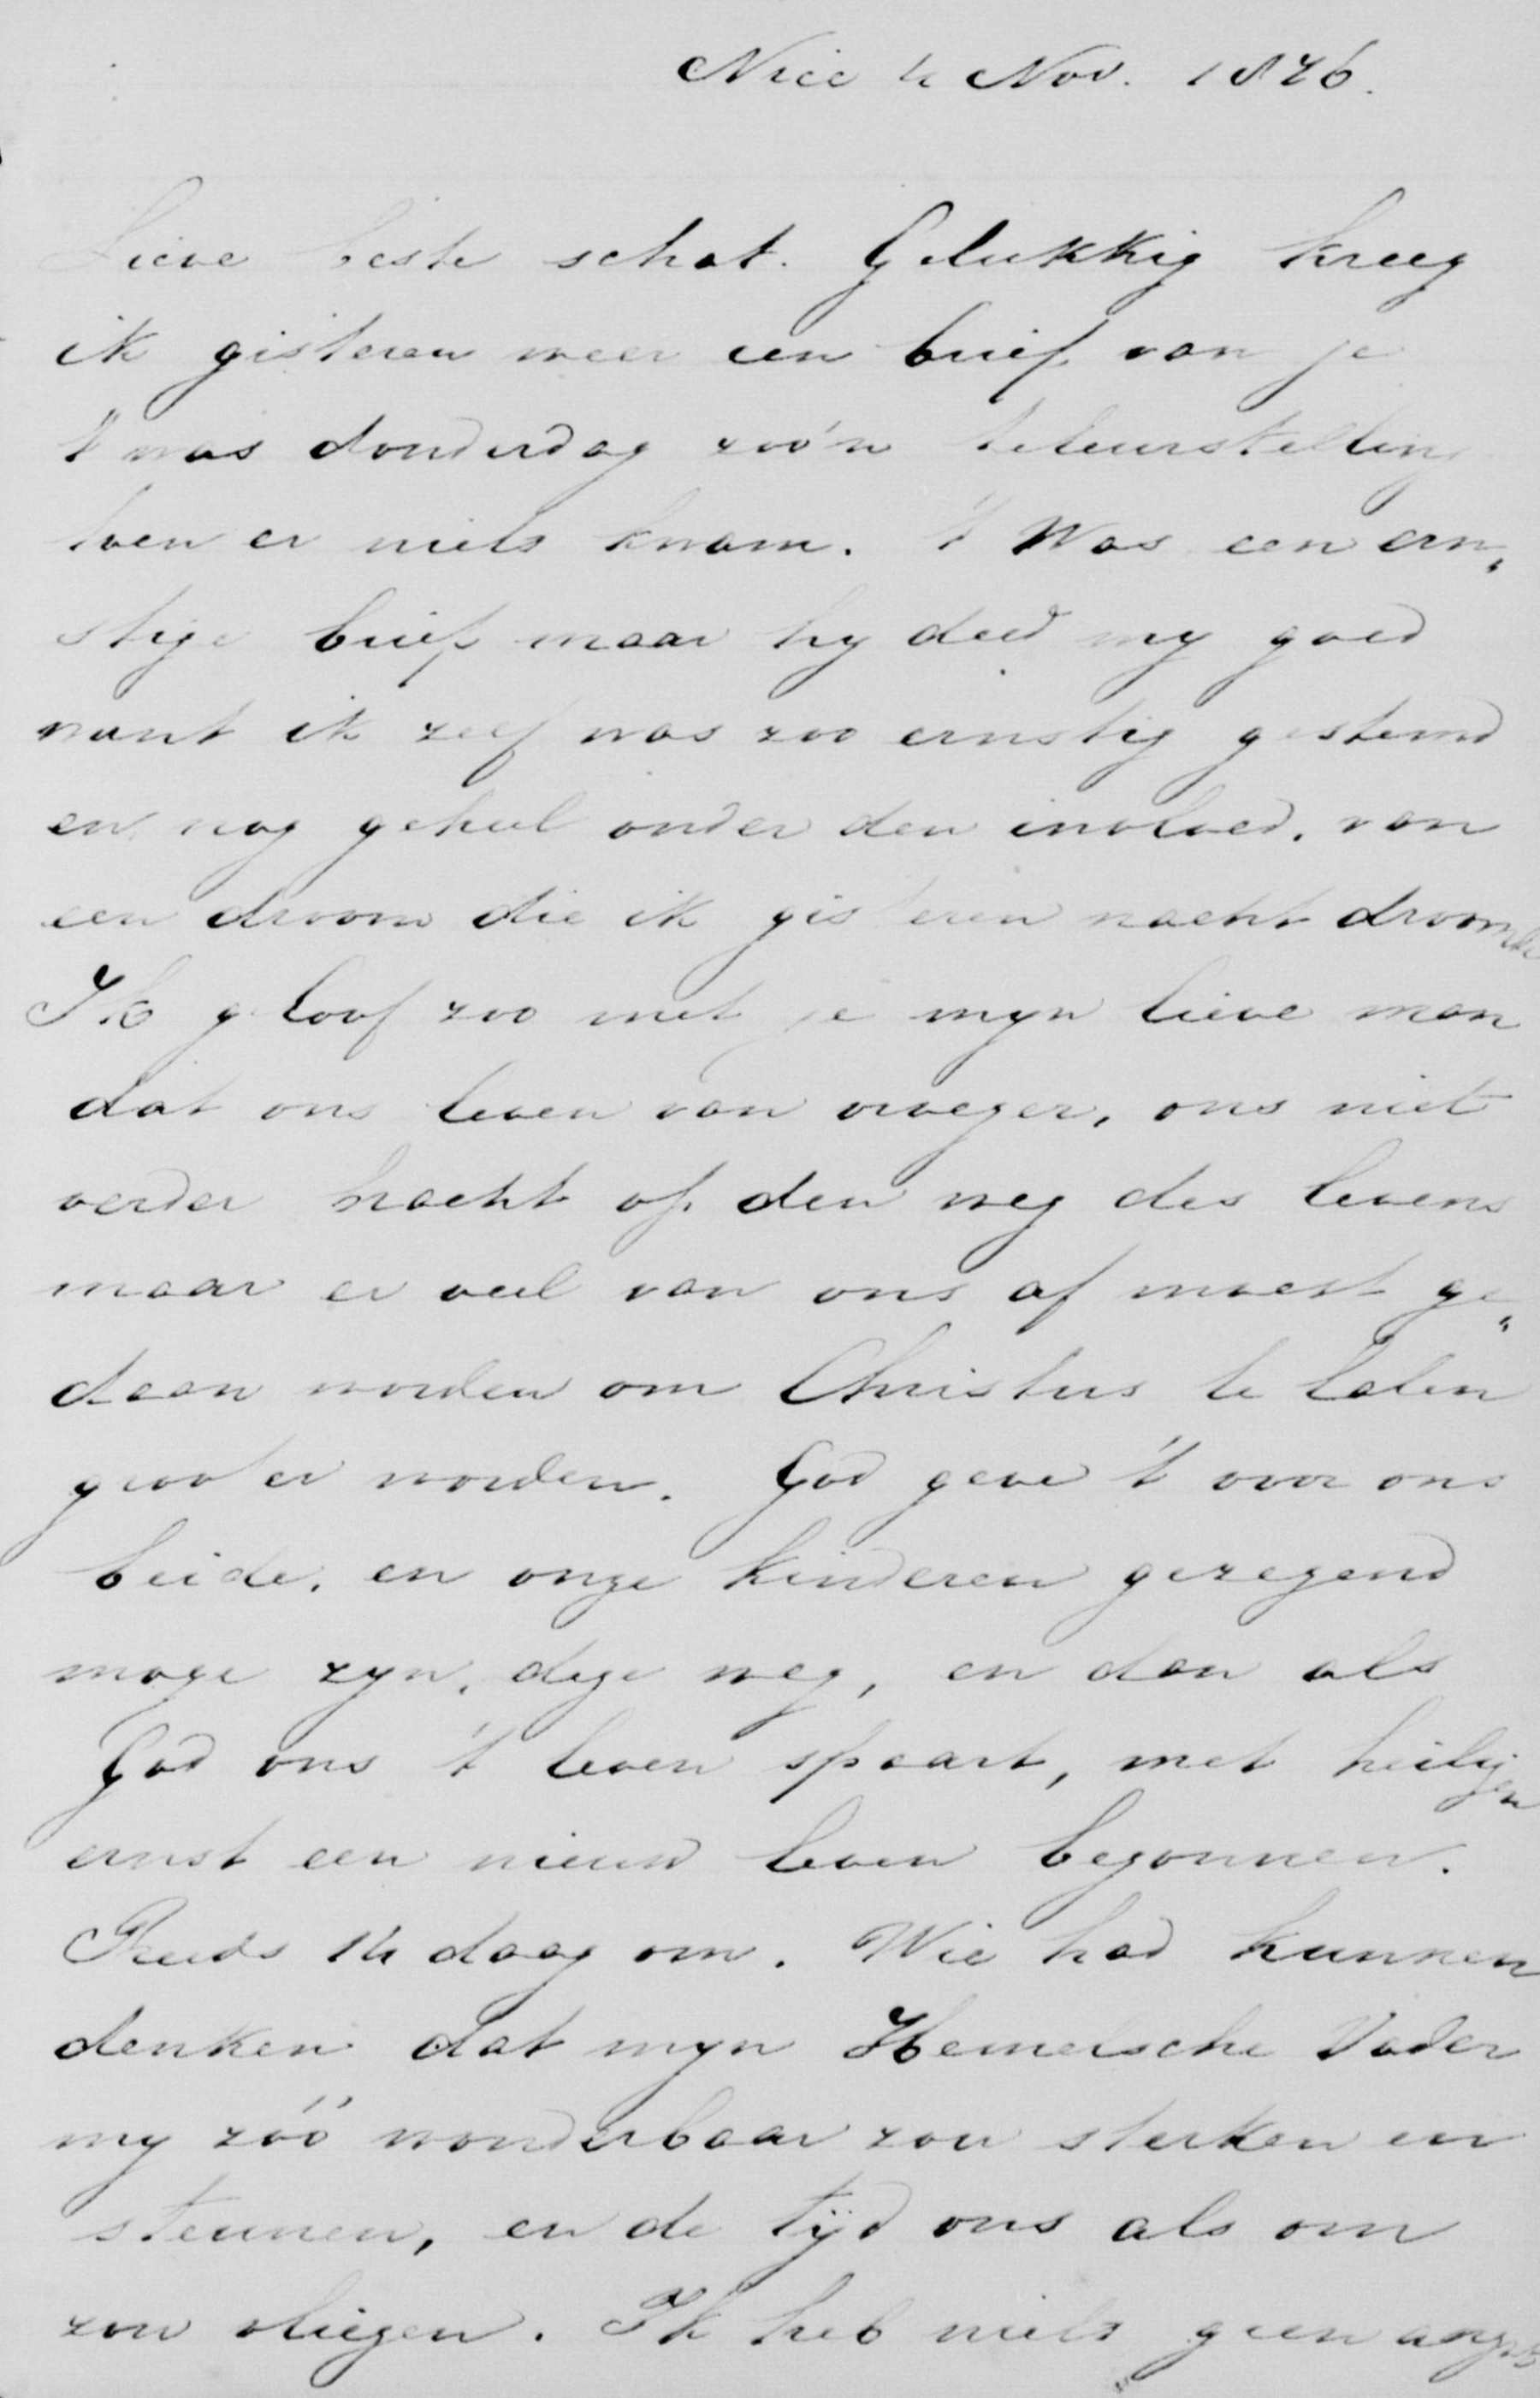 Nice 4 Nov. 1876.
Lieve beste schat. Gelukkig kreeg
ik gisteren weer een brief van je
't was donderdag zoo'n teleurstelling
toen er niets kwam. 't Was een ern„
stige brief maar hy deed my goed
want ik zelf was zoo ernstig gestemd
en nog geheel onder den invloed. van
een droom die ik gisteren nacht droomde
Ik geloof zoo met je myn lieve man
dat ons leven van vroeger, ons niet
verder bracht op den weg des levens
maar er veel van ons af moest ge„
daan worden om Christus te laten
grooter worden. God geve 't voor ons
beide, en onze kinderen gezegend
moge zyn, deze weg, en dan als
God ons 't leven spaart, met heiligen
ernst een nieuw leven begonnen.
Reeds 14 daag om. Wie had kunnen
denken dat myn Hemelsche Vader
my zóó wonderbaar zou sterken en
steunen, en de tijd ons als om
zou vliegen. Ik heb niets geen angst